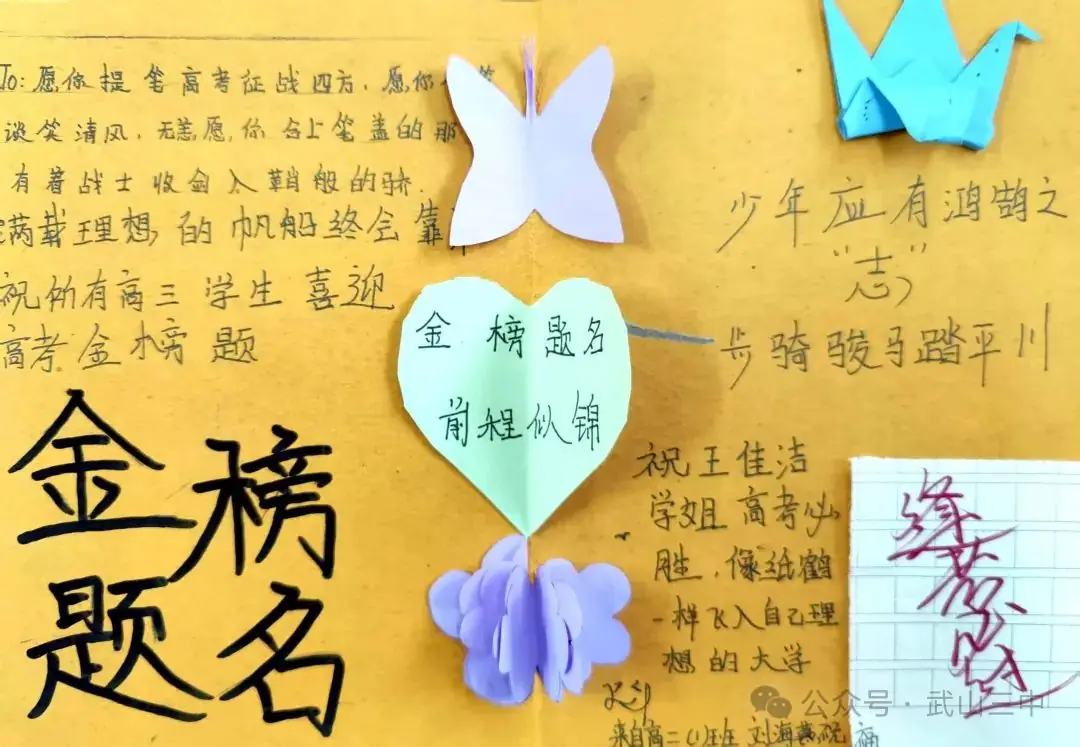 To: 愿你提笔高考征战四方，愿你
谈笑清风，无恙愿你合上笔盖的那
有着战士收剑入鞘般的骄
满载理想的帆船终会靠
祝所有高三学生喜迎
高考金榜题
金榜
题名
金榜题名
前程似锦
少年应有鸿鹄之
“志”
步骑骏马踏平川
祝王佳洁
学姐高考必
胜，像纸鹤
一样飞入自己理
想的大学
来自高二(1)班 刘海燕祝福
公众号·武山三中